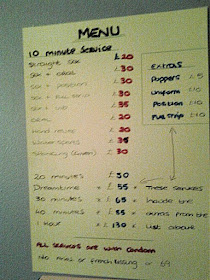 MENU
10 minute Service
Straight sex £20
Sex + oral £30
Sex + position £30
Sex + £30
Sex + £35
oral £20
Hand relief £20
Water sports £35
Spanking £30
EXTRAS
Poppers £5
Uniform £10
Position £10
Full Strip £10
20 minutes £50
= £55 = These services
30 minutes = £65 = include the
40 minutes = £55 = extras from the
1 Hour = £130 = list above
ALL SERVICES ARE WITH CONDOM
NO kissing or 69